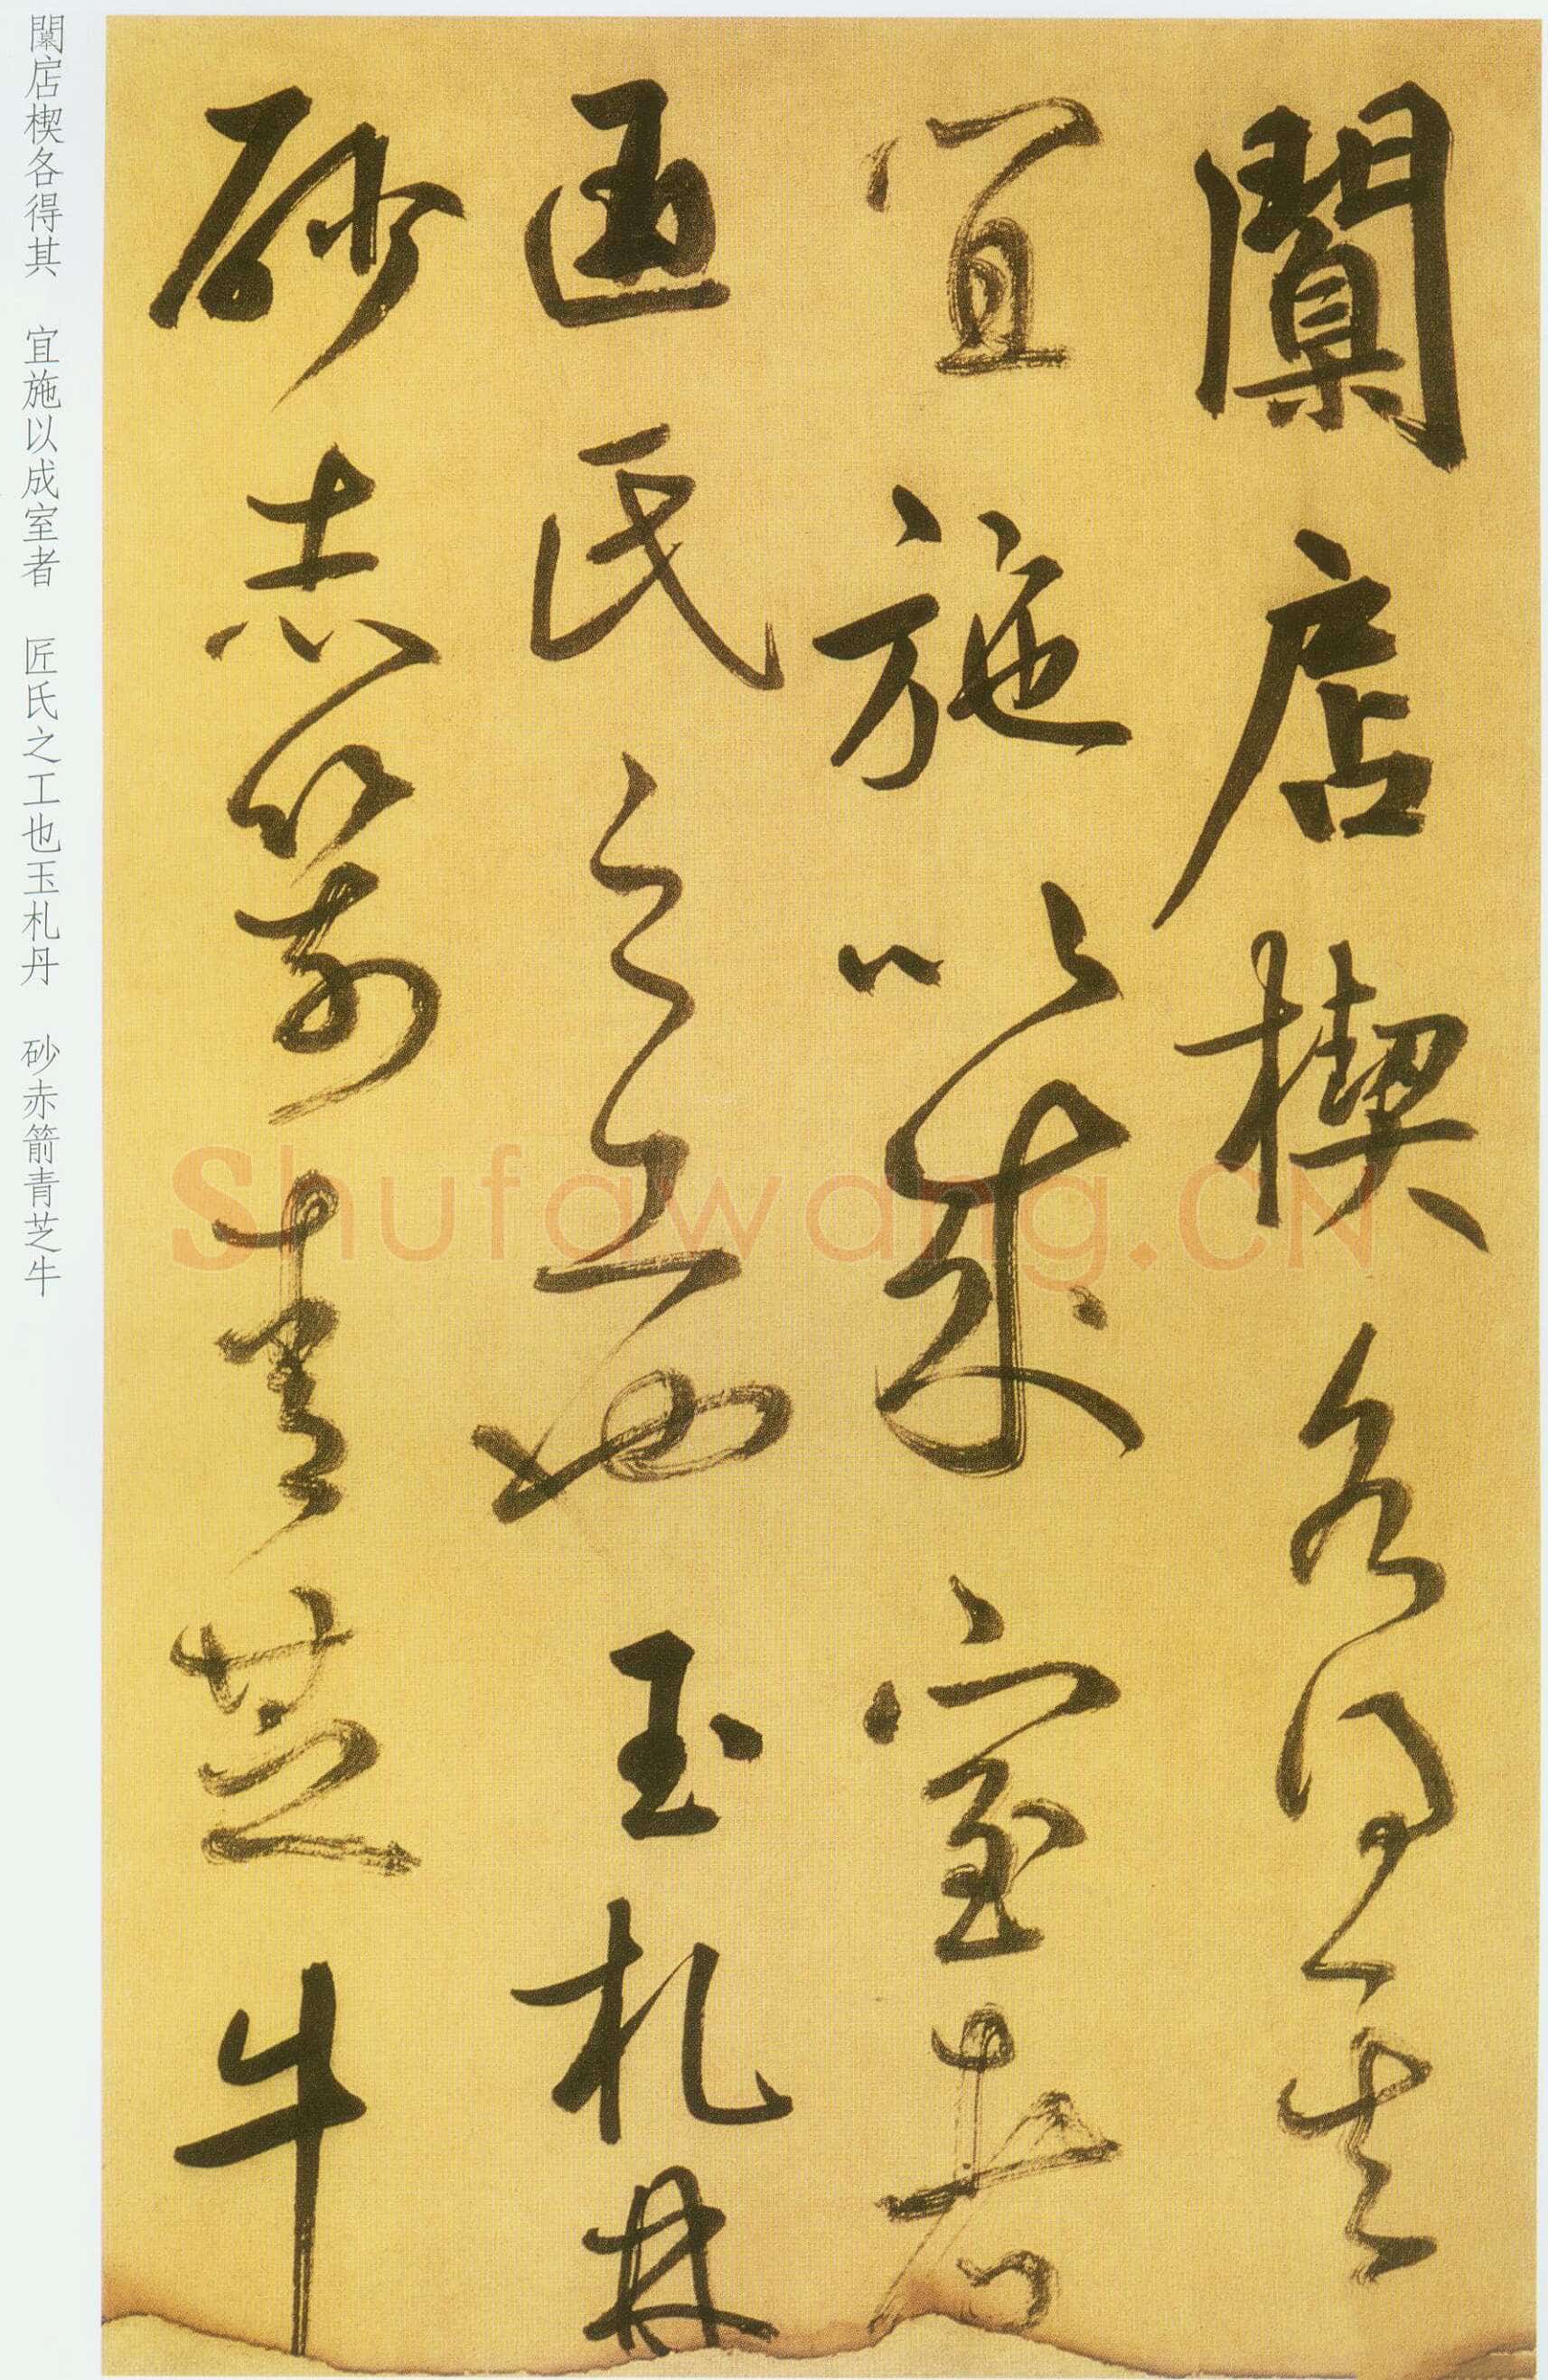 闑扂楔各得其
宜施以成室者
匠氏之工也玉札丹
砂赤箭青芝牛
闑扂楔各得其 宜施以成室者 匠氏之工也玉札丹 砂赤箭青芝牛
Shufawang.CN